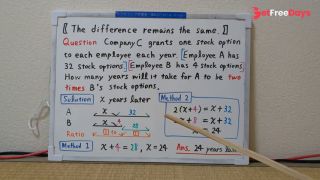 3atFreeDays
〖 The difference remains the same. 〗
Question Company C grants one stock option
to each employee each year. [Employee A has
32 stock options.] [Employee B has 4 stock options.]
How many years will it take for A to be two
times B's stock options.
Solution x years later
A x 32
B x 4
Ratio
Method 1 x+4 = 28, x = 24
Method 2
2(x+4) = x + 32
x + 8 = x + 32
x 24
Ans. 24 years